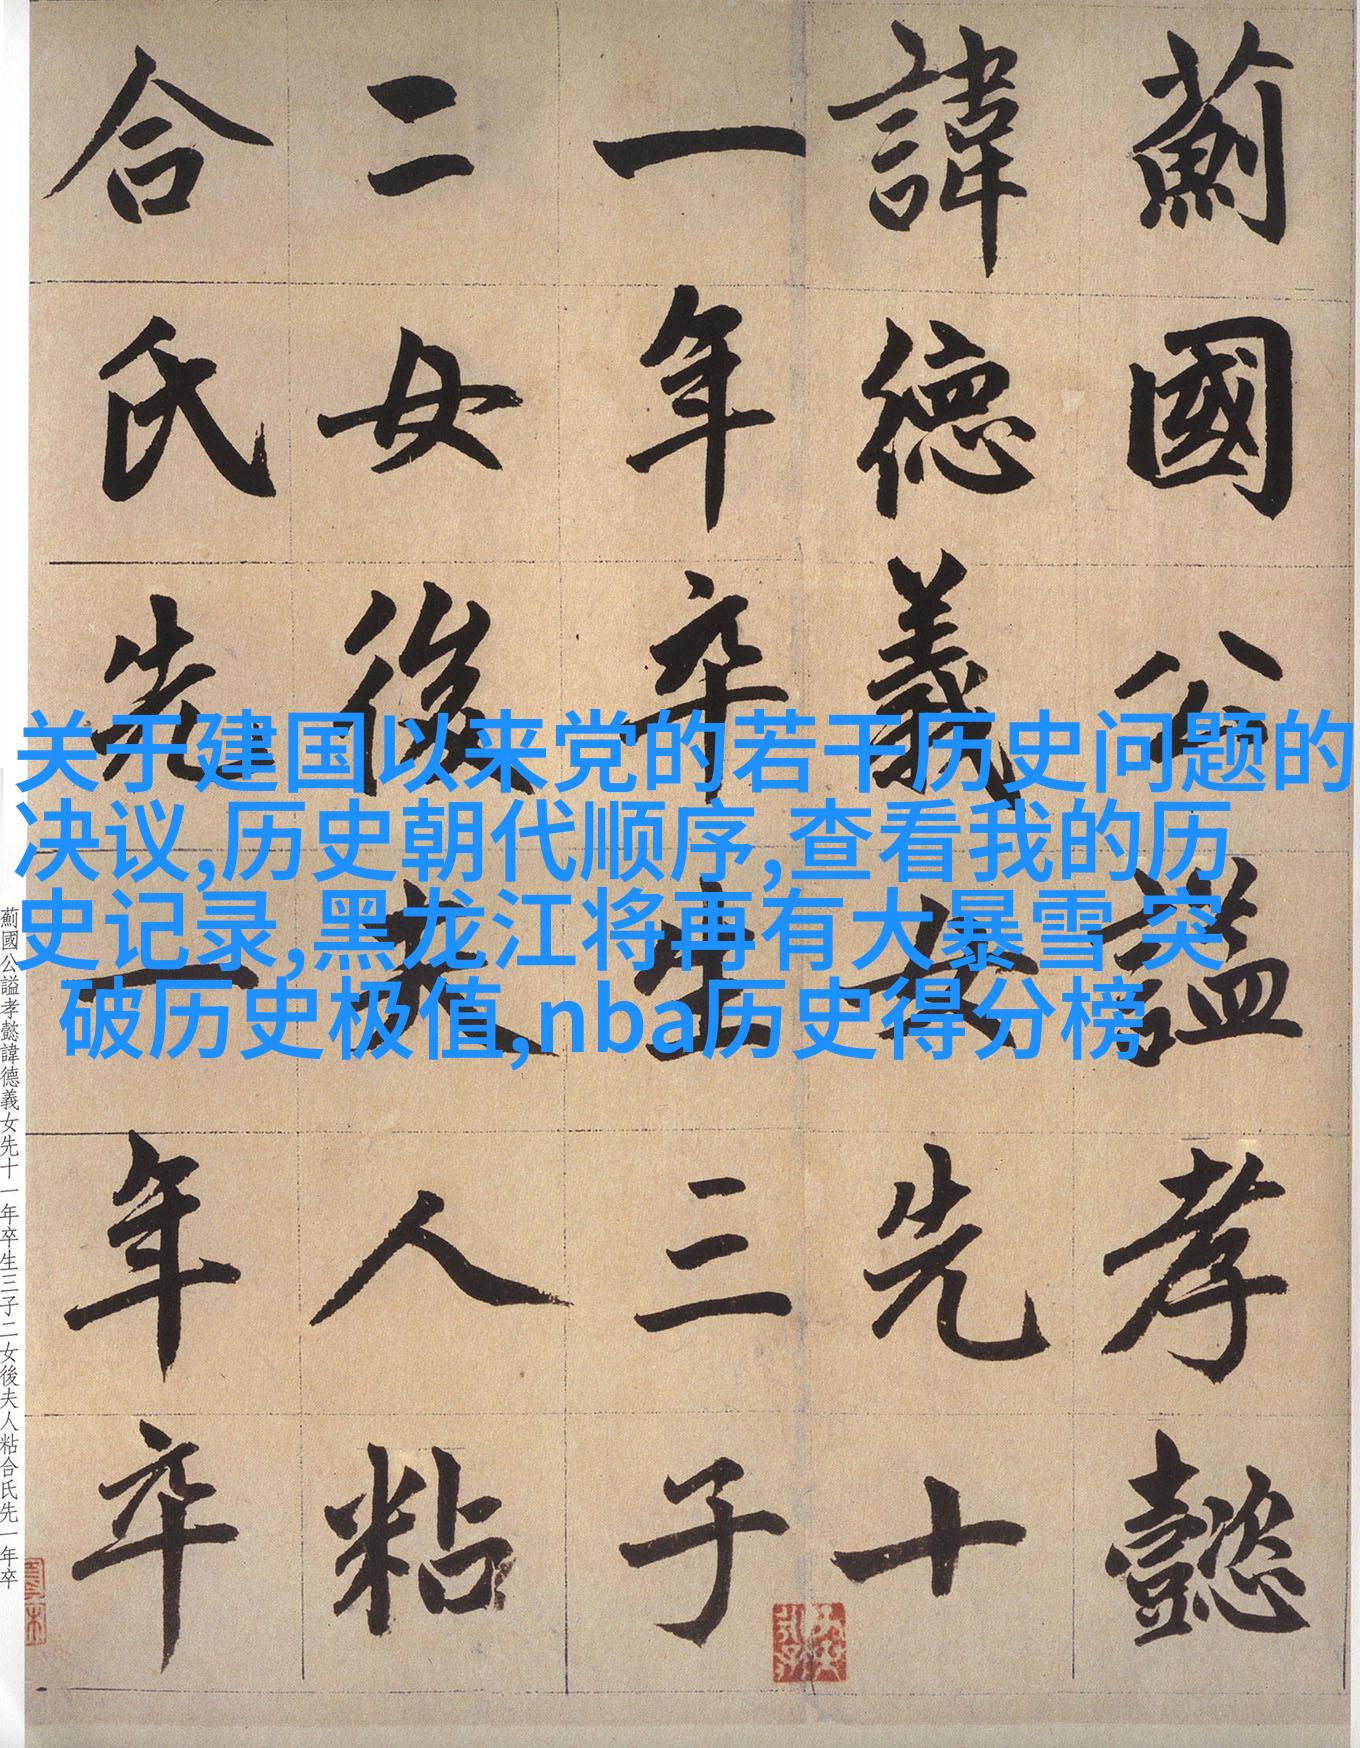 薊國公謚孝懿
諱德義女先十
一年卒生三子
二女後夫人粘
合氏先一年卒
关于建国以来党的若干历史问题的
决议,历史朝代顺序,查看我的历
史记录,黑龙江将再有大暴雪 突
破历史极值,nba历史得分榜
薊國公謚孝懿諱德義女先十一年卒生三子二女後夫人粘合氏先一年卒